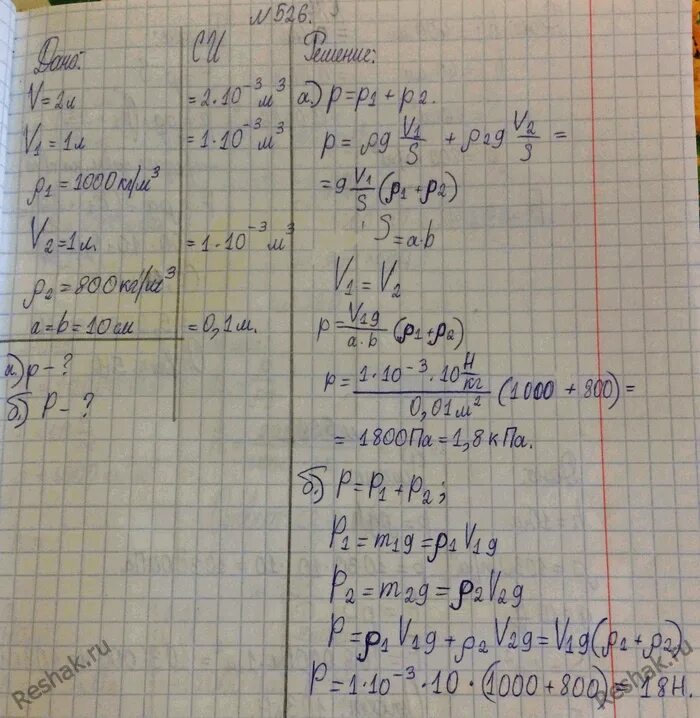 №526.
Дано:
V=2л
V₁=1л
ρ₁=1000кг/м³
V₂=1л.
ρ₂=800кг/м³
a=b=10см
а.) p-?
б.) P-?
СИ
=2·10⁻³м³
=1·10⁻³м³
=1·10⁻³м³
=0,1м.
Решение:
а.) p=p₁+p₂.
p=ρg V₁/S + ρ₂g V₂/S =
=g V₁/S (ρ₁+ρ₂)
S=a·b
V₁=V₂
p=V₁g/a·b (ρ₁+ρ₂)
p=1·10⁻³·10 Н/кг / 0,01м² (1000+800)=
=1800Па=1,8кПа.
б.) P=P₁+P₂;
P₁=m₁g=ρ₁V₁g
P₂=m₂g=ρ₂V₂g
P=ρ₁V₁g+ρ₂V₂g=V₁g(ρ₁+ρ₂)
P=1·10⁻³·10·(1000+800)=18Н.
Reshak.ru
Reshak.ru